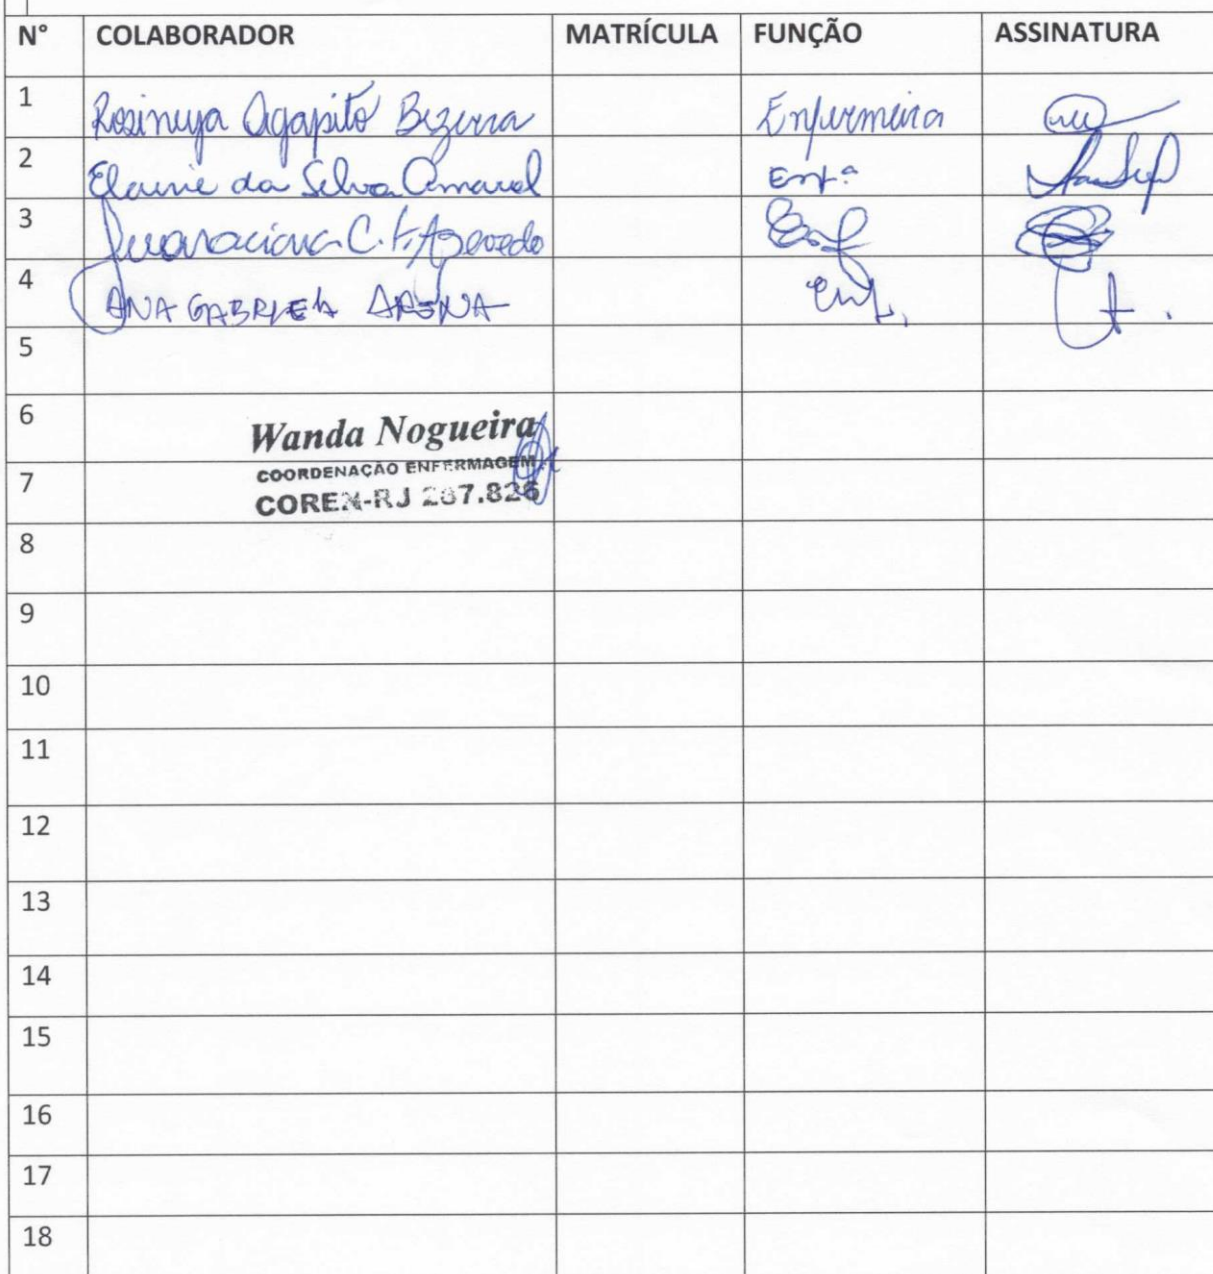 N° COLABORADOR MATRÍCULA FUNÇÃO ASSINATURA
1 Agapito Bizerra Enfermeira
2 Elaine da Silva Amaral Enfª
3 C. F. Azevedo Enf
4 ANA GABRIELA Enf.
5
6
Wanda Nogueira
COORDENAÇÃO ENFERMAGEM
7
COREN-RJ 267.826
8
9
10
11
12
13
14
15
16
17
18